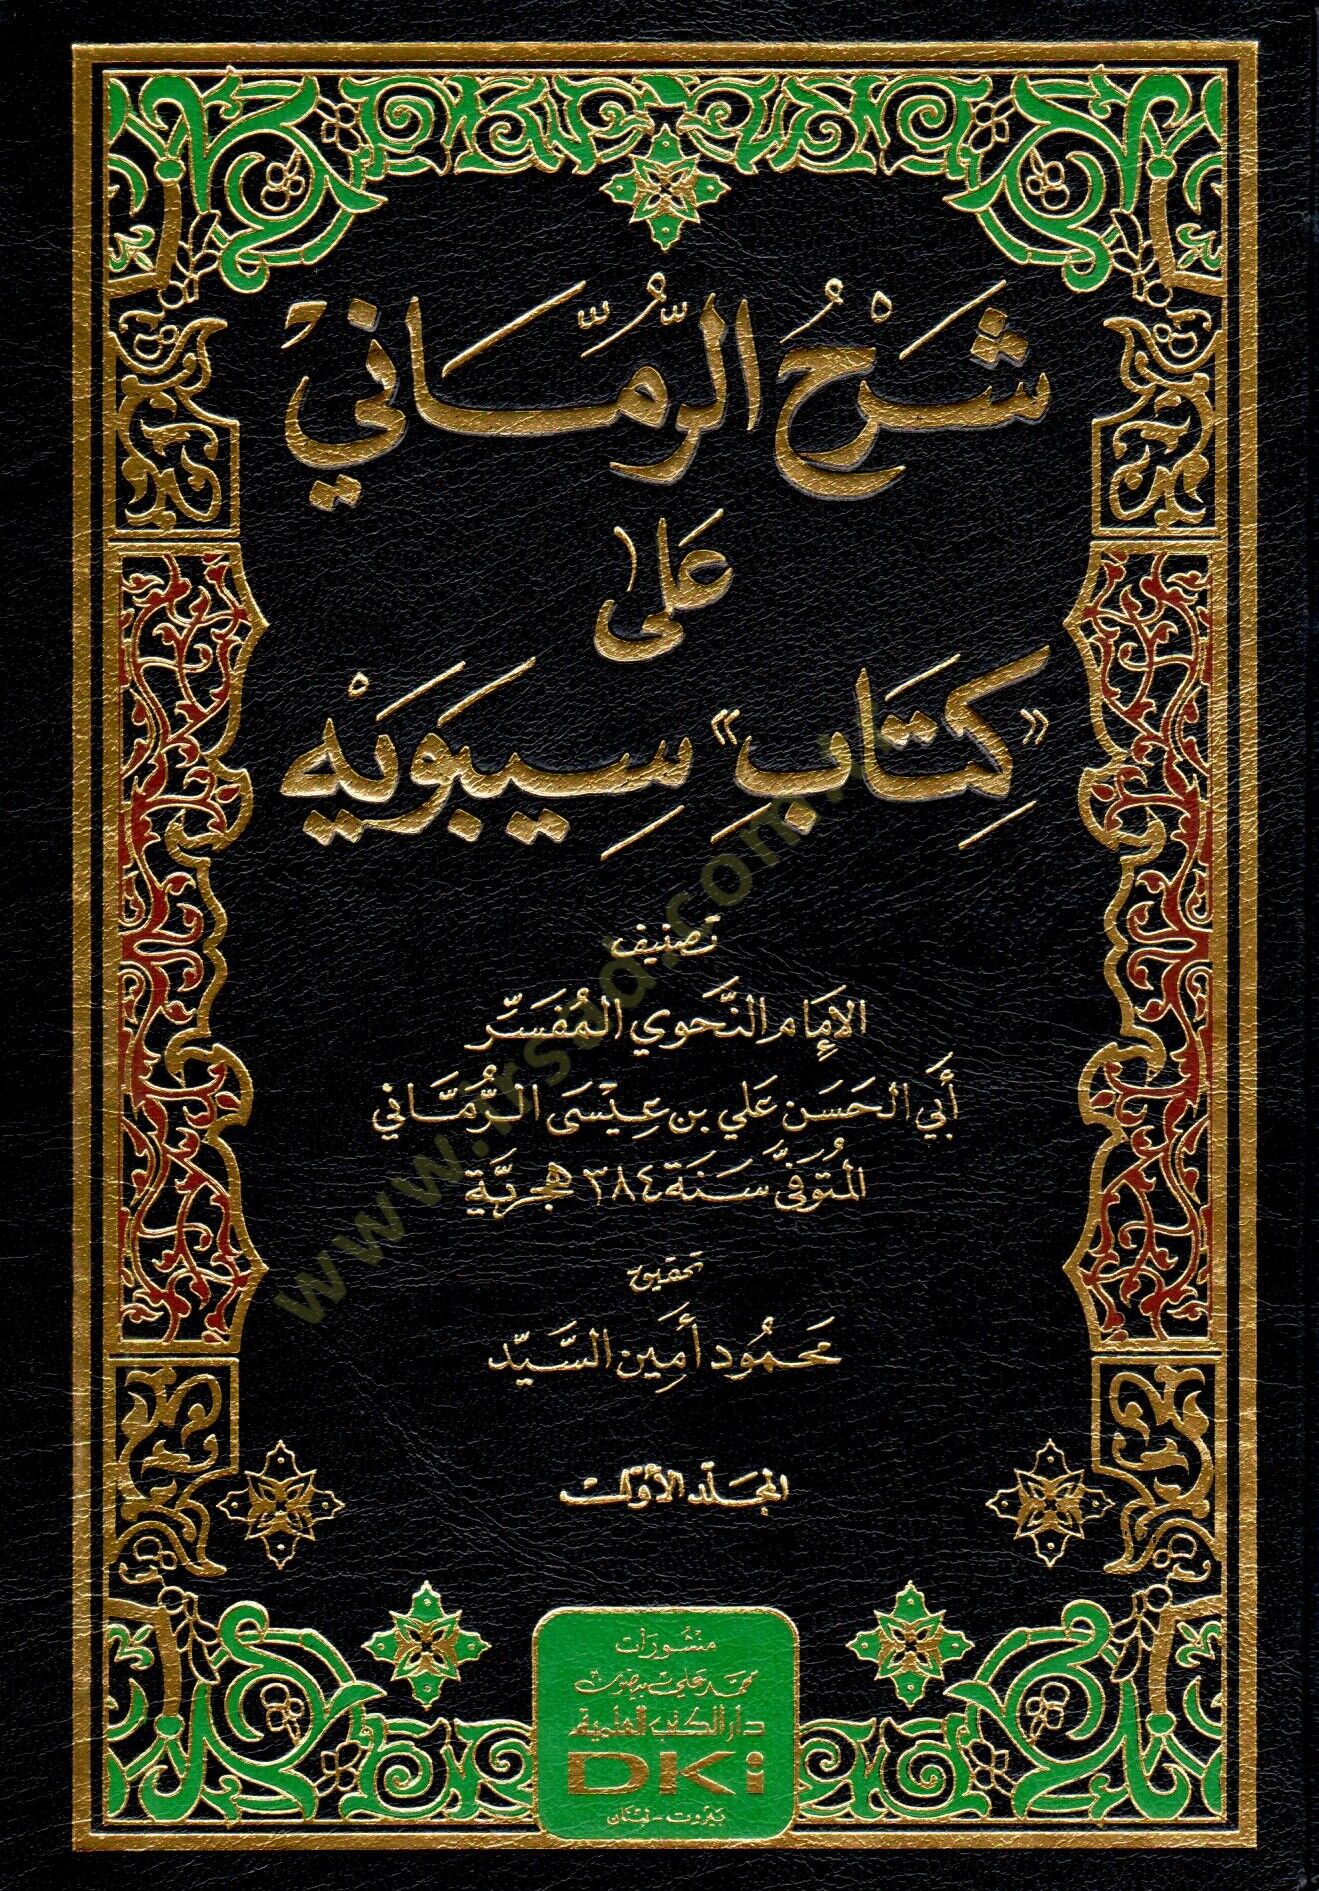 شَرْحُ الرُّمَّانيْ
عَلى
«كِتَابِ» سِيبَوَيْهِ
تصنيف
الإمَام النَّحوي المُفَسِّر
أَبي الحَسَن عَلي بن عِيْسَى الرُّمَّاني
المُتَوَفَّى سَنَة ٣٨٤ هجريَّة
تحقيق
محمُود أمِين السَّيِّد
المجَلّد الأوّل
منشورات
محمد علي بيضون
دار الكتب العلمية
DKi
بيروت - لبنان
www.irsad.com.tr